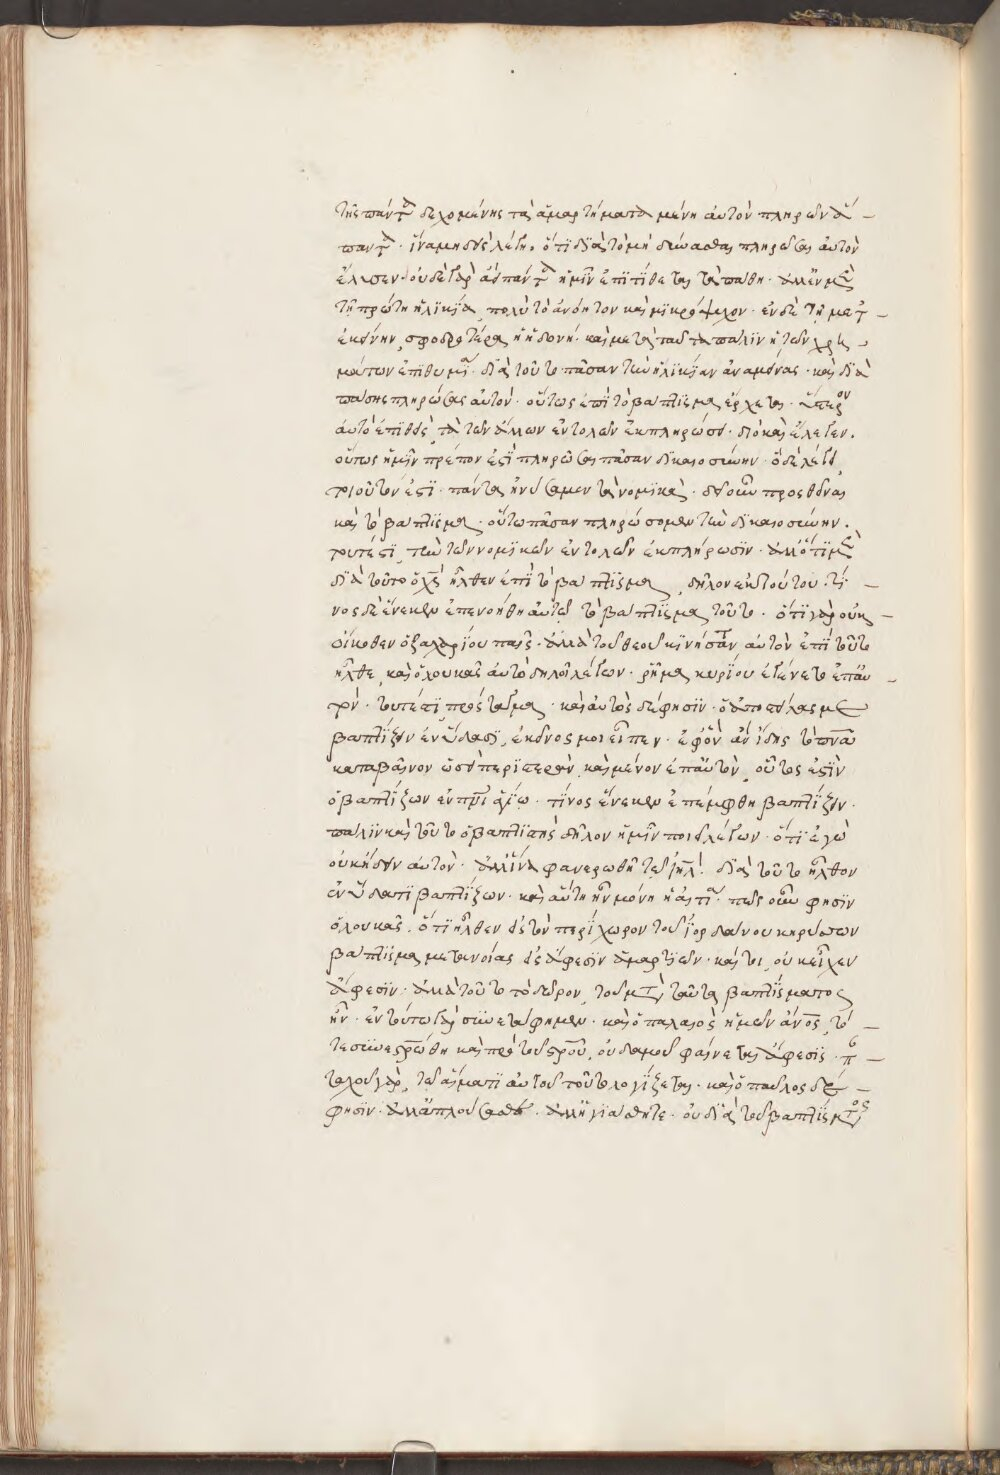 τῆς πάντα δεχομένης τὰ ἁμαρτήματα μένη αὐτὸν πληρῶν ἅ-
παντα· ἵνα μή τις λέγη, ὅτι διὰ τὸ μὴ δύνασθαι πληρῶσαι αὐτὸν
ἔλυσεν· οὐδὲ γὰρ ἀεὶ πάντα ἡμῖν ἐπιτίθεται τὰ πάθη· ἀλλ' ἐν μὲν
τῆ πρώτη ἡλικία, πολὺ τὸ ἀνόητον καὶ μικρόψυχον· ἐν δὲ τῆ μετ'
ἐκείνην, σφοδροτέρα ἡ ἡδονή· καὶ μετὰ ταῦτα πάλιν ἡ τῶν χρη-
μάτων ἐπιθυμία· διὰ τοῦτο πᾶσαν τὴν ἡλικίαν ἀναμείνας· καὶ διὰ
πάσης πληρώσας αὐτὸν· οὕτως ἐπὶ τὸ βάπτισμα ἔρχεται· ὕστερον
αὐτὸ ἐπιθεὶς, τῆ τῶν ἄλλων ἐντολῶν ἐκπληρώσει· διὸ καὶ ἔλεγεν·
οὕτως ἡμῖν πρέπον ἐστὶ πληρῶσαι πᾶσαν δικαιοσύνην· ὃ δὲ λέγει,
τοιοῦτόν ἐστι· πάντα ἠνύσαμεν τὰ νομικὰ· δεῖ οὖν προσθεῖναι
καὶ τὸ βάπτισμα· οὕτω πᾶσαν πληρώσομεν τὴν δικαιοσύνην·
τουτέστι, τὴν τῶν νομικῶν ἐντολῶν ἐκπλήρωσιν· ἀλλ' ὅτι μὲν
διὰ τοῦτο ὁ χς ἦλθεν ἐπὶ τὸ βάπτισμα, δῆλον ἐκ τούτου· τί-
νος δὲ ἕνεκεν ἐπενοήθη αὐτῶ τὸ βάπτισμα τοῦτο· ὅτι γὰρ οὐκ
οἴκοθεν ὁ ζαχαρίου παῖς· ἀλλὰ τοῦ θεοῦ κινήσαντος αὐτὸν ἐπὶ τοῦτο
ἦλθε, καὶ ὁ λουκᾶς αὐτὸ δηλοῖ λέγων· ῥῆμα κυρίου ἐγένετο ἐπ' αὐ-
τόν· τουτέστι, πρόσταγμα· καὶ αὐτὸς δέ φησιν· ὁ ἀποστείλας με
βαπτίζειν ἐν ὕδατι, ἐκεῖνός μοι εἶπεν· ἐφ' ὃν ἂν ἴδης τὸ πνα
καταβαῖνον ὡσεὶ περιστερὰν, καὶ μένον ἐπ' αὐτὸν, οὗτός ἐστιν
ὁ βαπτίζων ἐν πνι ἁγίω· τίνος ἕνεκεν ἐπέμφθη βαπτίζειν·
πάλιν καὶ τοῦτο ὁ βαπτιστὴς δῆλον ἡμῖν ποιεῖ λέγων· ὅτι ἐγὼ
οὐκ ἤδειν αὐτὸν· ἀλλ' ἵνα φανερωθῆ τῶ ιηλ· διὰ τοῦτο ἦλθον
ἐν ὕδατι βαπτίζων· καὶ αὕτη ἦν μόνη ἡ αἰτία· πῶς οὖν φησὶν
ὁ λουκᾶς· ὅτι ἦλθεν εἰς τὸν περίχωρον τοῦ ἰορδάνου κηρύσσων
βάπτισμα μετανοίας εἰς ἄφεσιν ἁμαρτιῶν· καί τοι, οὐκ εἶχεν
ἄφεσιν· ἀλλὰ τοῦτο τὸ δῶρον, τοῦ μετὰ ταῦτα βαπτίσματος
ἦν· ἐν τούτω γὰρ συνετάφημεν· καὶ ὁ παλαιὸς ἡμῶν ανος, τό-
τε συνεσταυρώθη καὶ πρὸ τοῦ στρου, οὐδαμοῦ φαίνεται ἄφεσις· π-
ταχοῦ γὰρ, τῶ αἵματι αὐτοῦ τοῦτο λογίζεται· καὶ ὁ παῦλος δέ
φησιν· ἀλλ' ἀπελούσασθε· ἀλλ' ἡγιάσθητε· οὐ διὰ τοῦ βαπτίσματος